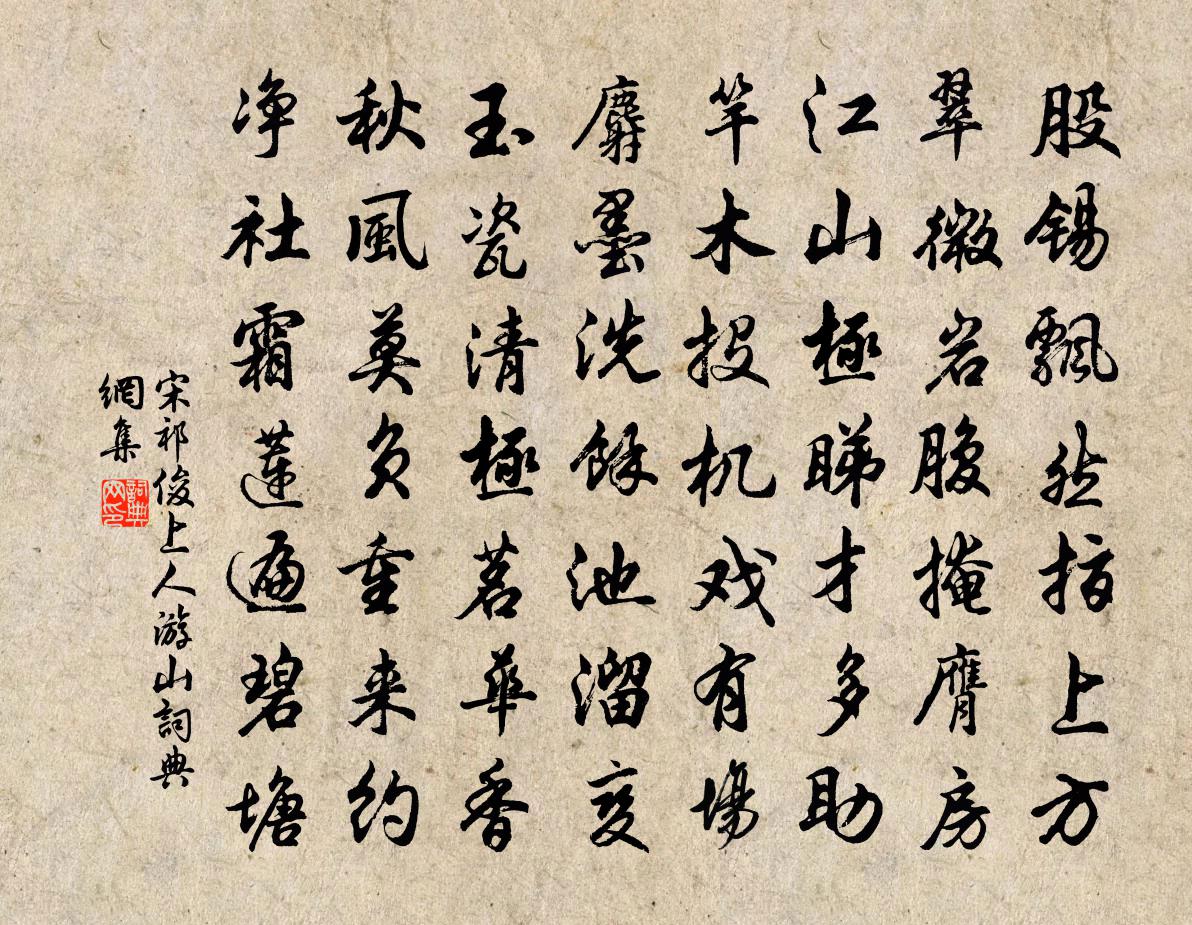 股锡飘然指上方
翠微岩腹掩膺房
江山極睇才多助
竿木投机戏有場
麝墨洗餘池溜变
玉瓷清極茗華香
秋風莫负重来约
净社霜莲遍碧塘
宋祁俊上人游山詞典
網集
詞典
网印